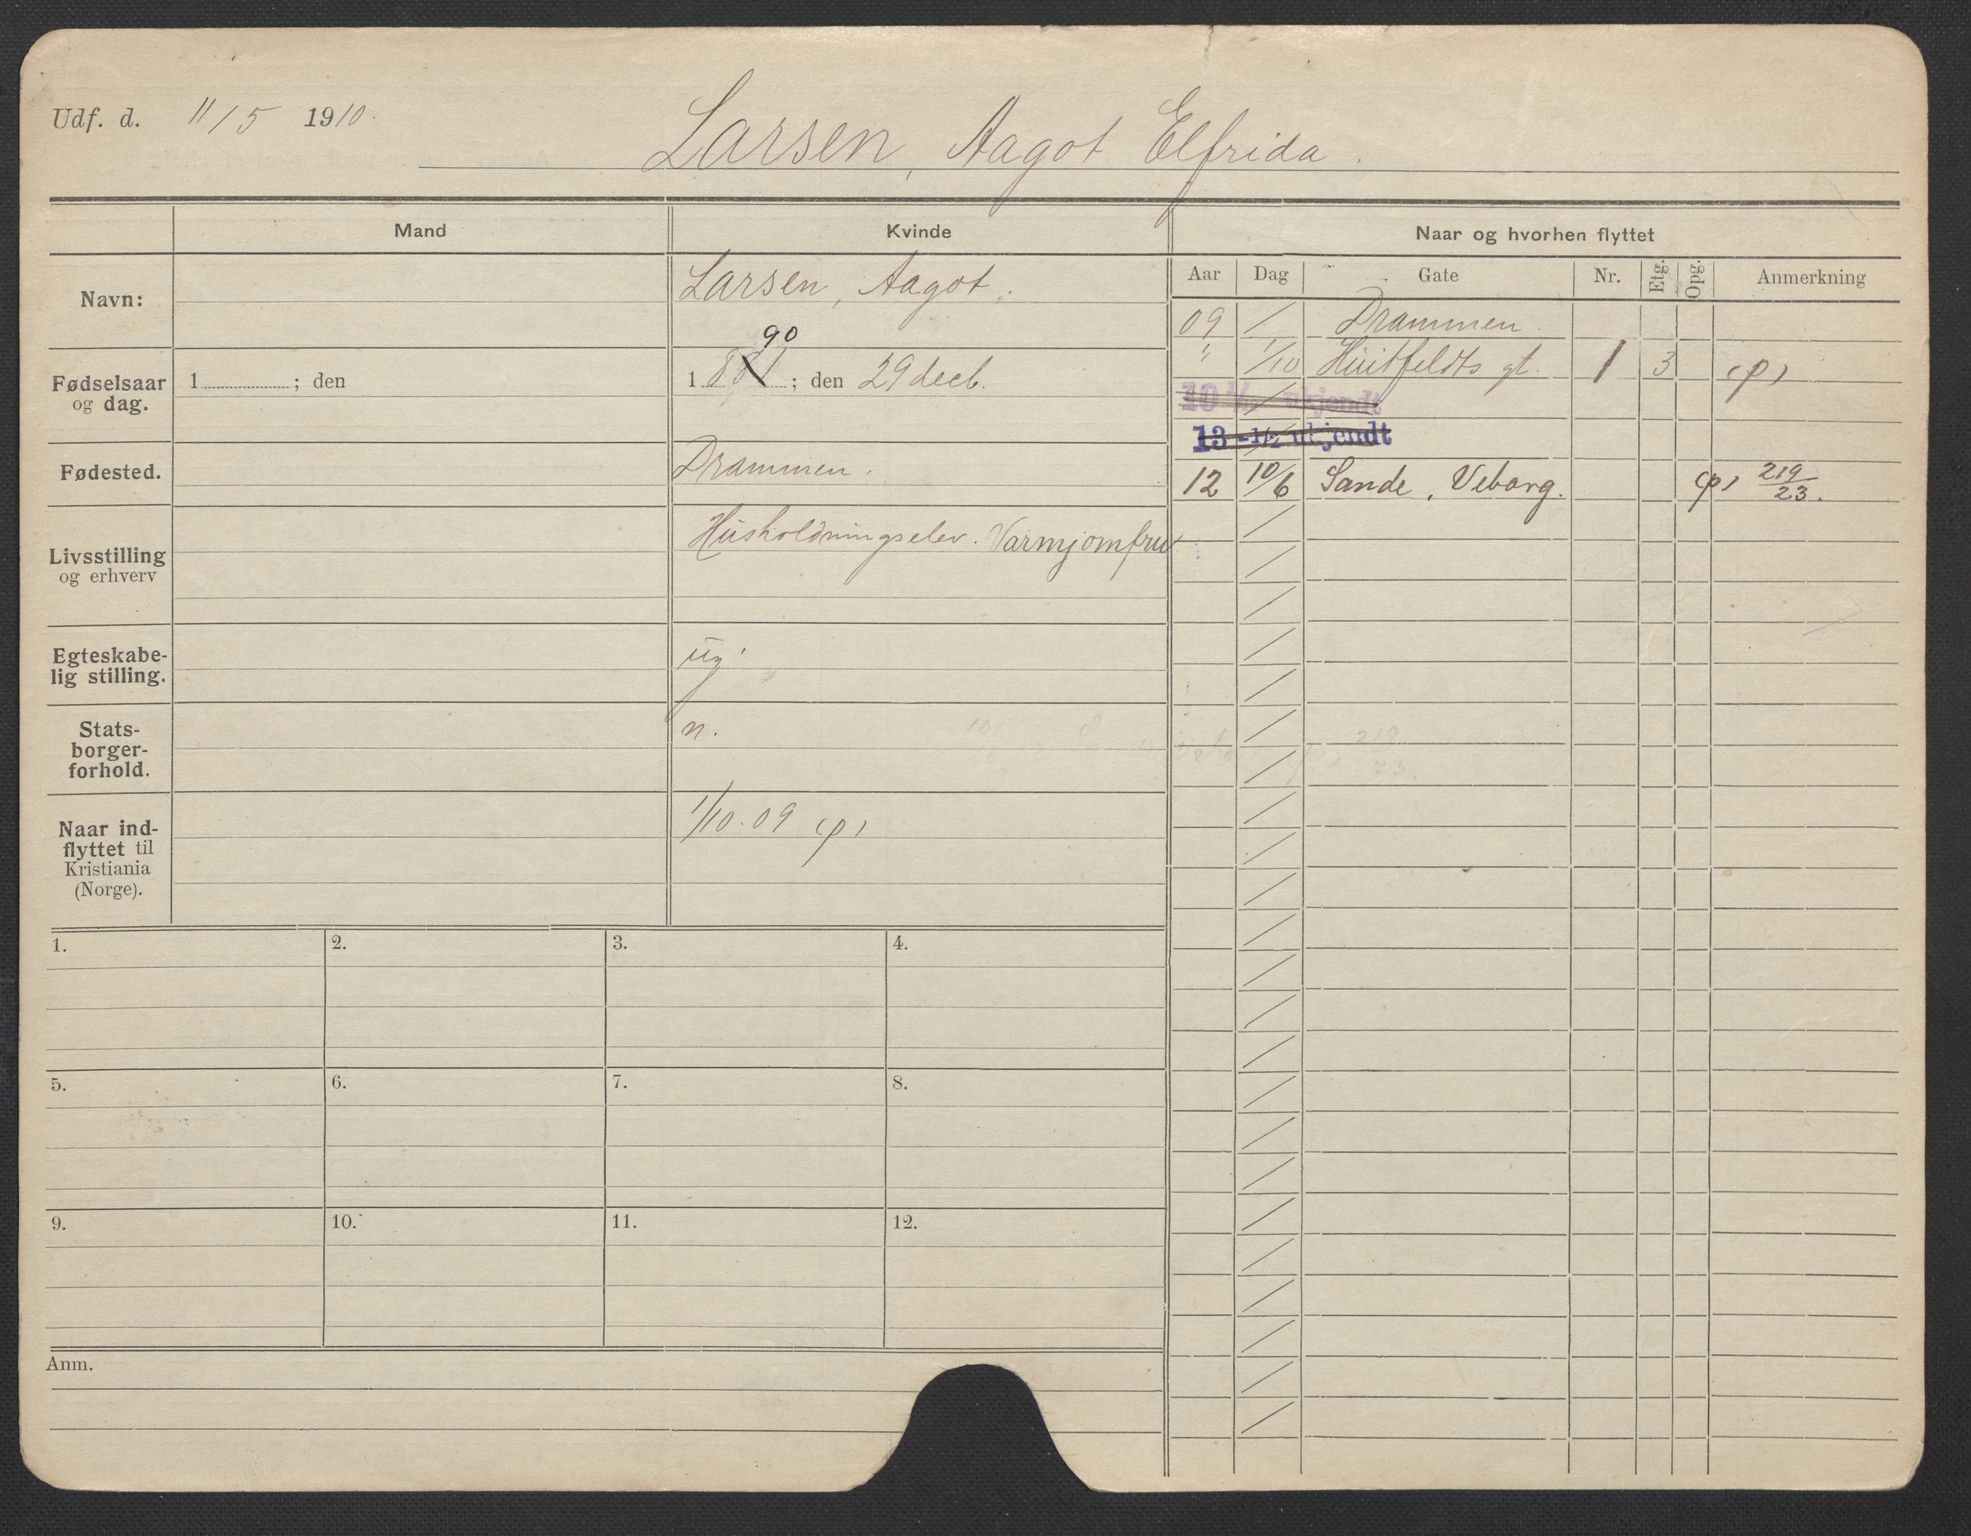 Udf. d. 11/5 1910.
Larsen, Aagot Elfrida.
Mand
Kvinde
Naar og hvorhen flyttet
Aar
Dag
Gate
Nr.
Etg.
Opg.
Anmerkning
Navn:
Larsen, Aagot.
Fødselsaar og dag.
1 ; den
90
1 881 ; den 29 decb.
Fødested.
Drammen.
Livsstilling og erhverv
Husholdningselev. Varmjomfru
Egteskabe-
lig stilling.
ug.
Stats-
borger-
forhold.
n.
Naar ind-
flyttet til
Kristiania
(Norge).
1/10.09 (p)
09 / Drammen.
" 1/10 Huitfeldts gt. 1 3 (p)
10 ukjendt
13 - 1/2 ukjendt
12 10/6 Sande, Veborg. (p) 219/23.
1.
2.
3.
4.
5.
6.
7.
8.
9.
10.
11.
12.
Anm.